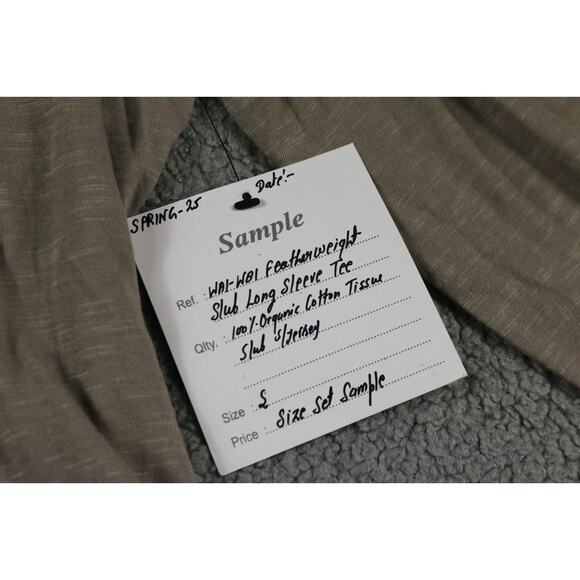 SPRING-25
Date:-
Sample
Ref. : WAI-WAI Featherweight
Slub Long Sleeve Tee
Qlty. : 100% Organic Cotton Tissue
Slub S/Jersey
Size : S
Price : Size Set Sample